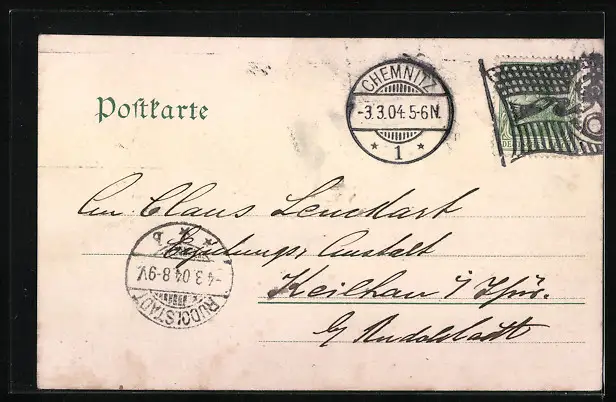 Postkarte
CHEMNITZ
-3.3.04.5-6N.
* 1 *
An Claus Lenckart
Erziehungs Anstalt
Keilhau i Thür.
b/ Rudolstadt
RUDOLSTADT
-4.3.04.8-9V.
* b *